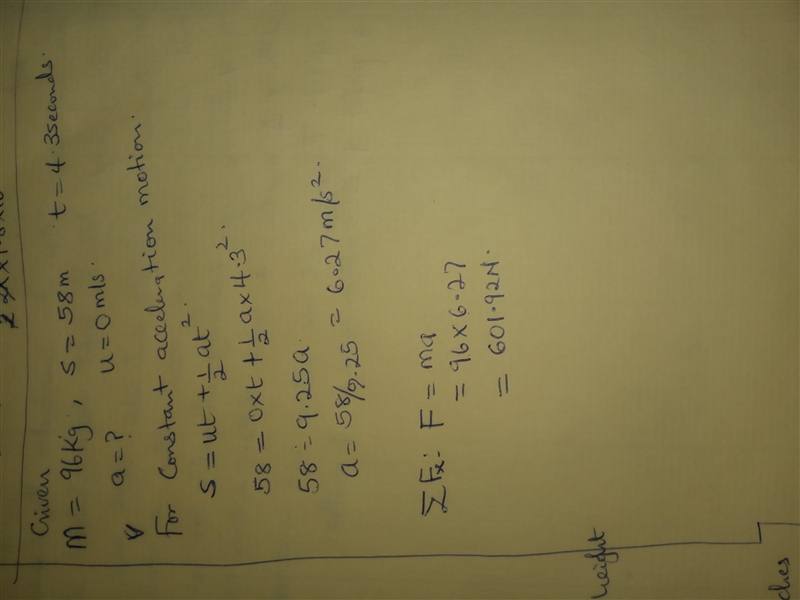 Given
M = 96Kg, s = 58m t = 4.3seconds.
a = ? u = 0m/s.
For Constant acceleration motion.
S = ut + 1/2 at².
58 = 0xt + 1/2 a x 4.3².
58 = 9.25a.
a = 58/9.25 = 6.27m/s².
ΣFx: F = ma
= 96 x 6.27
= 601.92N.
height
ches